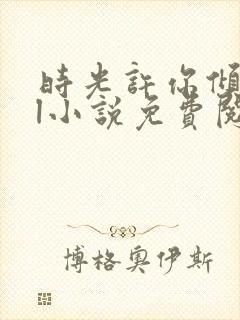 時光許你傾
1小說免費閱
博格奧伊斯